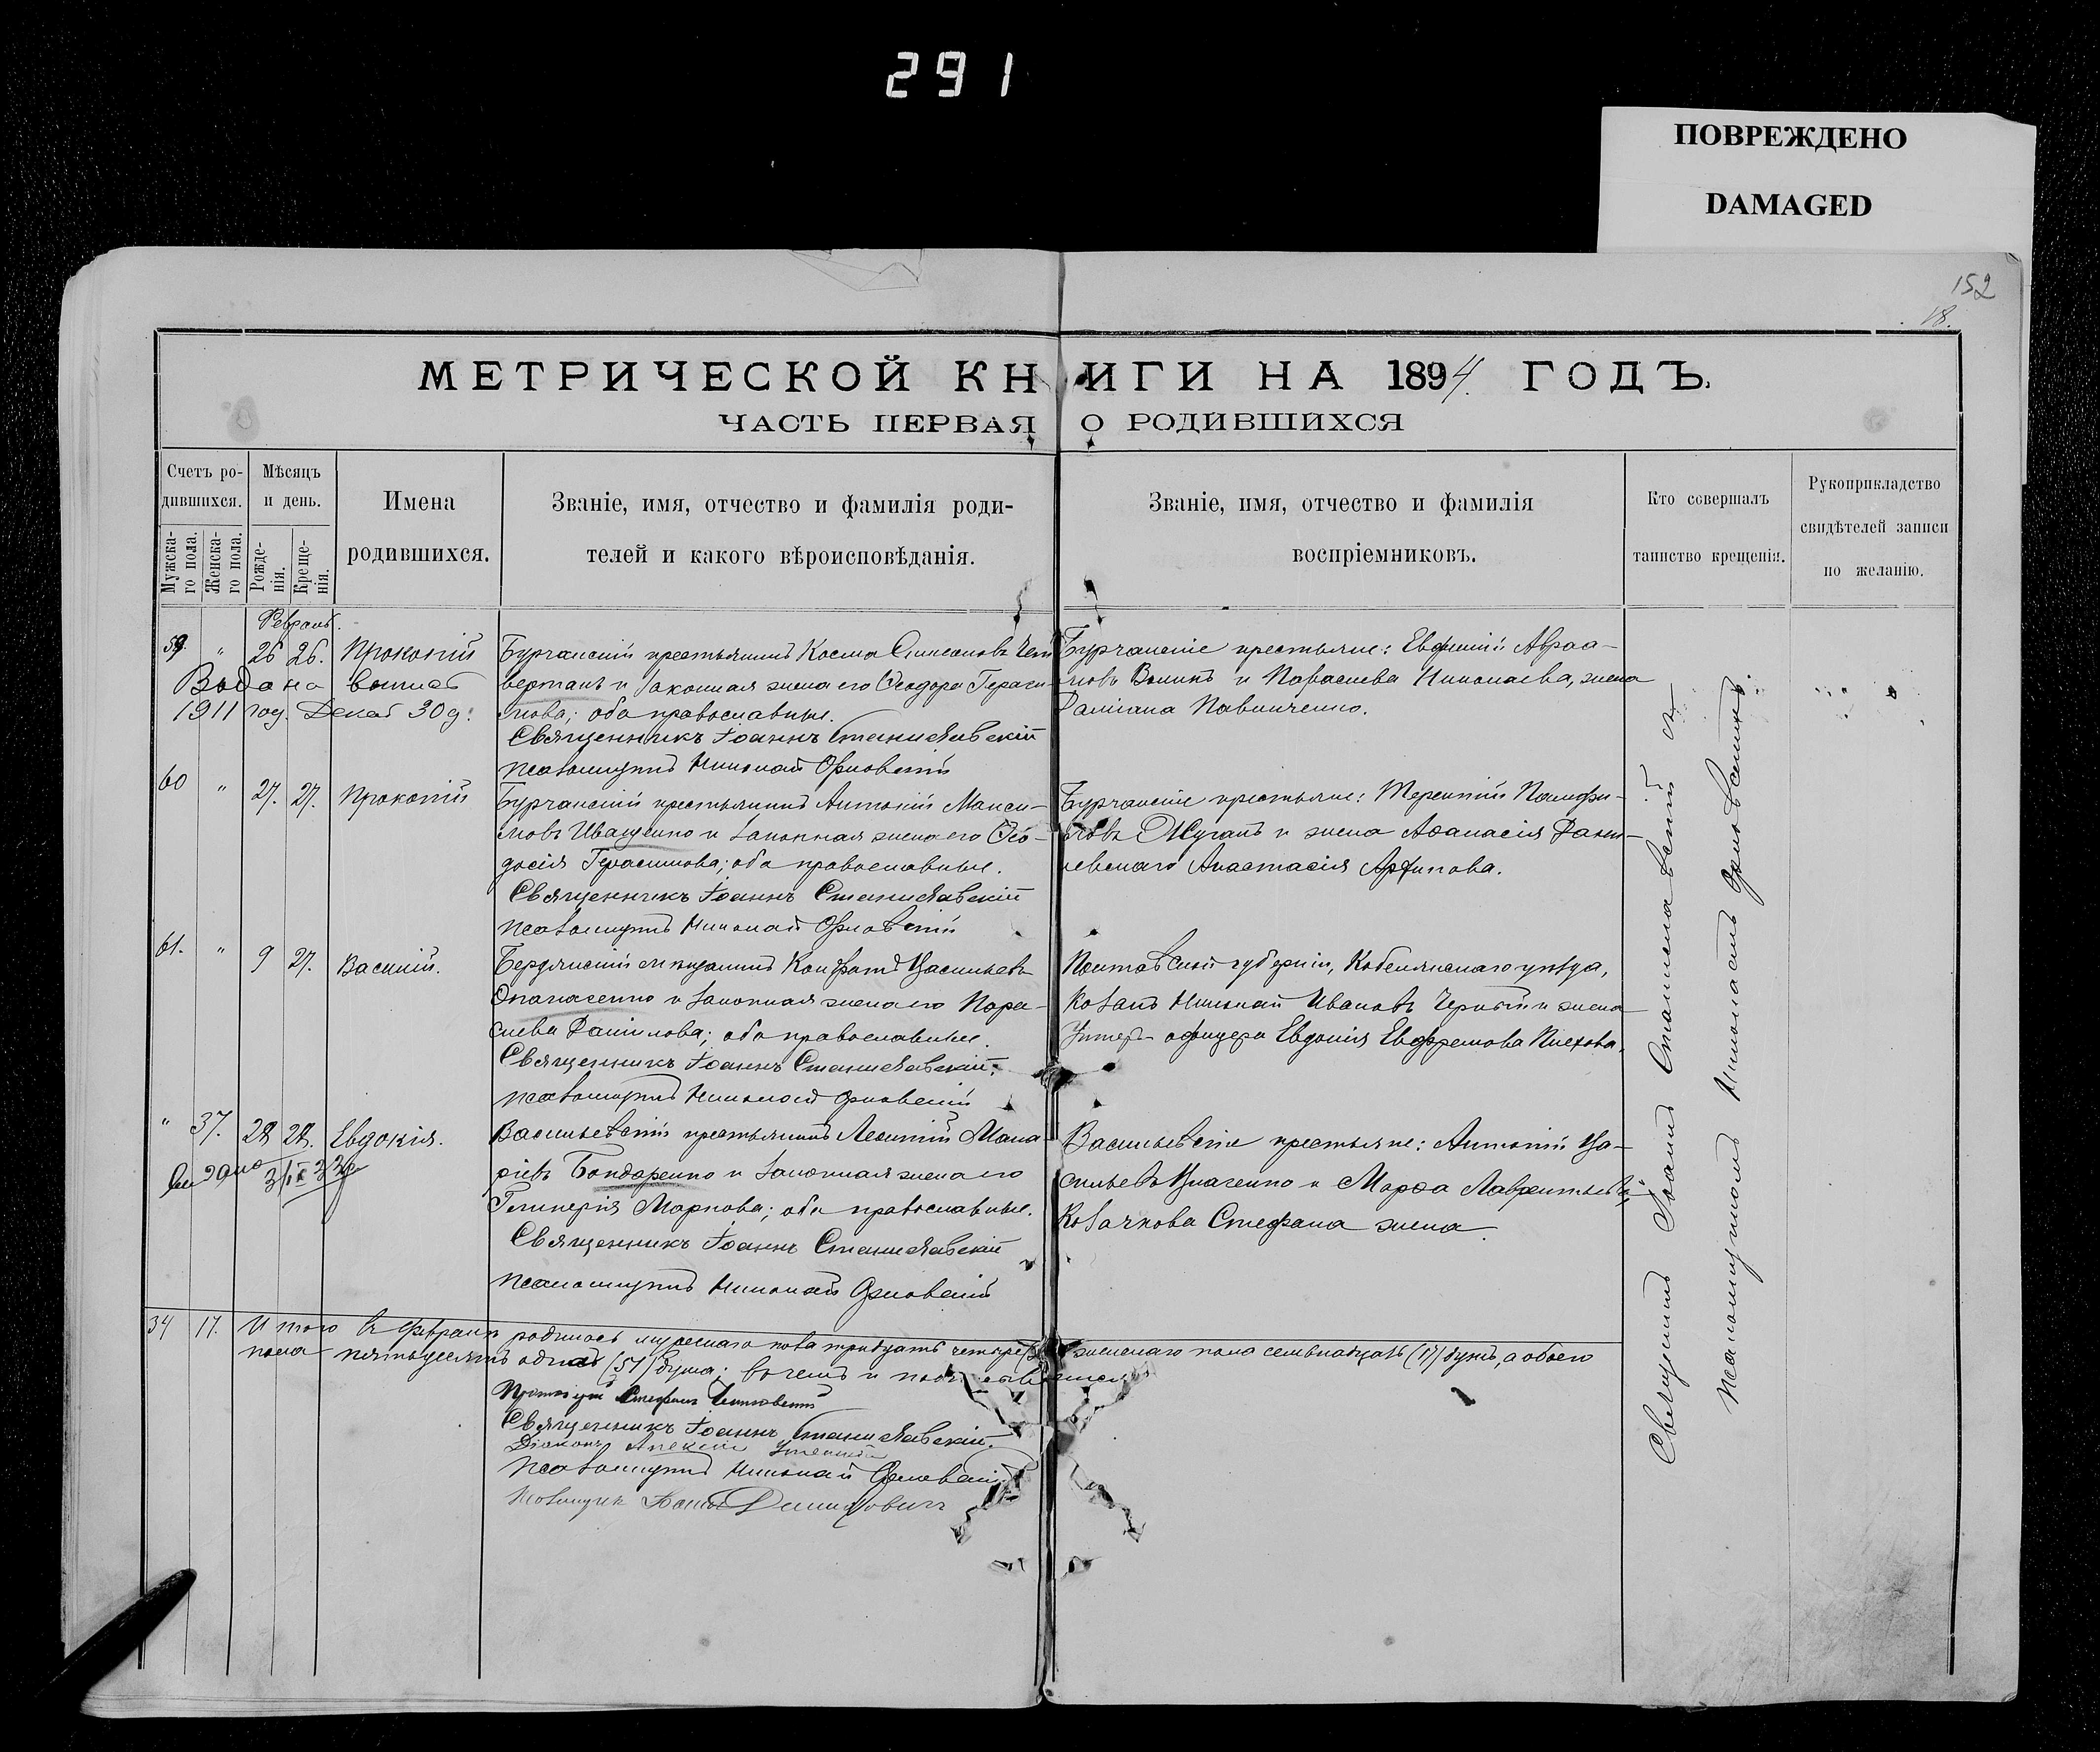 291
ПОВРЕЖДЕНО
DAMAGED
152
18.
МЕТРИЧЕСКОЙ КНИГИ НА 1894 ГОДЪ.
ЧАСТЬ ПЕРВАЯ О РОДИВШИХСЯ
Счетъ ро-
дившихся.
Мужска-
го пола.
Женска-
го пола.
Мѣсяцъ
и день.
Рожде-
нія.
Креще-
нія.
Имена
родившихся.
Званіе, имя, отчество и фамилія роди-
телей и какого вѣроисповѣданія.
Званіе, имя, отчество и фамилія
воспріемниковъ.
Кто совершалъ
таинство крещенія.
Рукоприкладство
свидѣтелей записи
по желанію.
Февраль.
59. " 26 26. Прокопій
1911 год. Декаб 30 д.
Бурчанскій крестьянинъ Косма Симеоновъ Чет-
вертакъ и законная жена его Ѳеодора Гераси-
мова; оба православные.
Священникъ Іоаннъ Станиславскій
Псаломщикъ Николай Орловскій
Бурчанскіе крестьяне: Евфимій Авраа-
мовъ Воликъ и Параскева Николаева, жена
Даміана Павличенко.
60 " 27. 27. Прокопій
Бурчанскій крестьянинъ Антоній Макси-
мовъ Иващенко и законная жена его Ѳео-
досія Герасимова; оба православные.
Священникъ Іоаннъ Станиславскій
Псаломщикъ Николай Орловскій
Бурчанскіе крестьяне: Терентій Памфи-
ловъ Жуганъ и жена Аѳанасія Дани-
левскаго Анастасія Архипова.
61. " 9 27. Василій.
Бердянскій мѣщанинъ Кондратъ Васильевъ
Опанасенко и законная жена его Пара-
скева Даніилова; оба православные.
Священникъ Іоаннъ Станиславскій.
Псаломщикъ Николай Орловскій
Полтавской губерніи, Кобелякскаго уѣзда,
Козакъ Николай Ивановъ Черный и жена
Унтеръ-офицера Евдокія Евфремова Пискова.
" 37. 28 28. Евдокія.
Васильевскій крестьянинъ Леонтій Мака-
ріевъ Бондаренко и законная жена его
Гликерія Маркова; оба православные.
Священникъ Іоаннъ Станиславскій
Псаломщикъ Николай Орловскій
Васильевскіе крестьяне: Антоній Ва-
сильевъ Власенко и Марѳа Лаврентьева,
Козачкова Стефана жена.
Священникъ Іоаннъ Станиславскій съ
Псаломщикомъ Николаемъ Орловскимъ.
34 17. Итого въ Февралѣ родилось мужескаго пола тридцать четыре женскаго пола семьнадцать (17) душъ, а обоего
пола пятьдесятъ одна (51) душа; въ чемъ и
Священникъ Іоаннъ Станиславскій.
Діаконъ Алексій
Псаломщикъ Николай Орловскій
Псаломщик